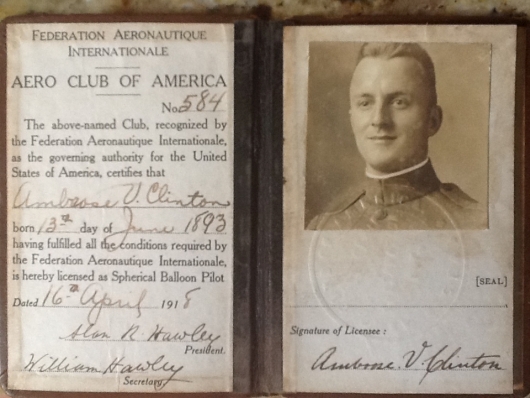 FEDERATION AERONAUTIQUE
INTERNATIONALE
AERO CLUB OF AMERICA
No. 584
The above-named Club, recognized by
the Federation Aeronautique Internationale,
as the governing authority for the United
States of America, certifies that
Ambrose V. Clinton
born 13th day of June 1893
having fulfilled all the conditions required by
the Federation Aeronautique Internationale,
is hereby licensed as Spherical Balloon Pilot
Dated 16th April 1918
Alan R. Hawley
President.
William Hawley
Secretary.
[SEAL]
Signature of Licensee :
Ambrose. V. Clinton